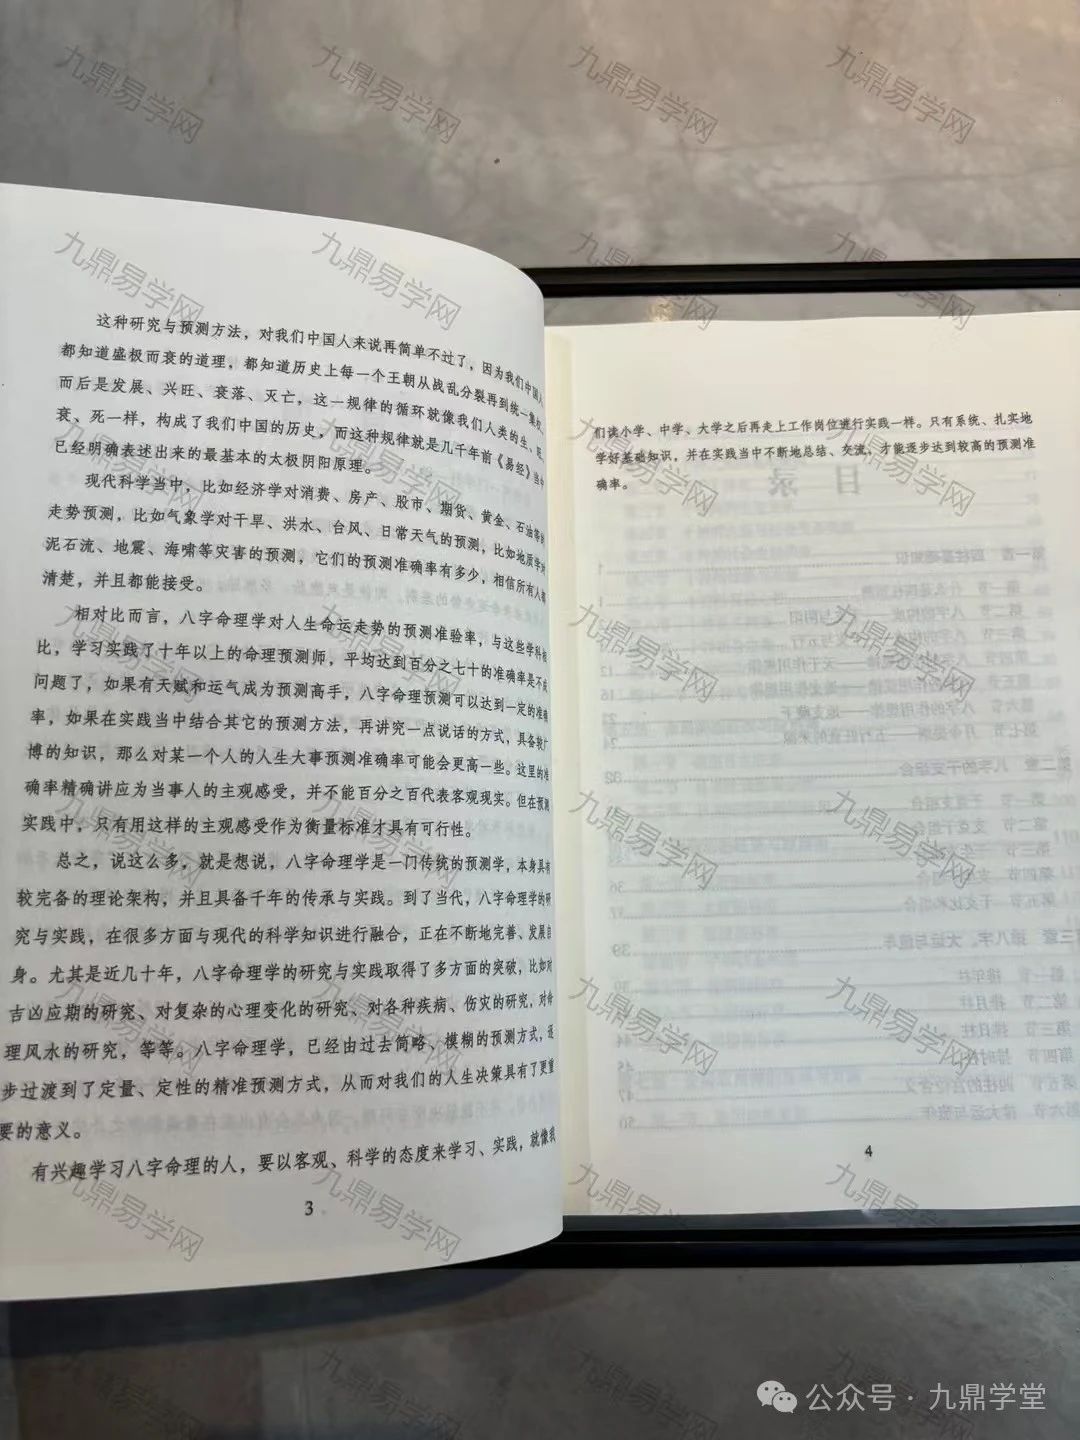 这种研究与预测方法，对我们中国人来说再简单不过了，因为我们中国人
都知道盛极而衰的道理，都知道历史上每一个王朝从战乱分裂再到统一集权，
而后是发展、兴旺、衰落、灭亡，这一规律的循环就像我们人类的生、旺、
衰、死一样，构成了我们中国的历史，而这种规律就是几千年前《易经》当中
已经明确表述出来的最基本的太极阴阳原理。
现代科学当中，比如经济学对消费、房产、股市、期货、黄金、石油等的
走势预测，比如气象学对干旱、洪水、台风、日常天气的预测，比如地质学对
泥石流、地震、海啸等灾害的预测，它们的预测准确率有多少，相信所有人都
清楚，并且都能接受。
相对比而言，八字命理学对人生命运走势的预测准验率，与这些学科相
比，学习实践了十年以上的命理预测师，平均达到百分之七十的准确率是不成
问题了，如果有天赋和运气成为预测高手，八字命理预测可以达到一定的准确
率，如果在实践当中结合其它的预测方法，再讲究一点说话的方式，具备较广
博的知识，那么对某一个人的人生大事预测准确率可能会更高一些。这里的准
确率精确讲应为当事人的主观感受，并不能百分之百代表客观现实。但在预测
实践中，只有用这样的主观感受作为衡量标准才具有可行性。
总之，说这么多，就是想说，八字命理学是一门传统的预测学，本身具有
较完备的理论架构，并且具备千年的传承与实践。到了当代，八字命理学的研
究与实践，在很多方面与现代的科学知识进行融合，正在不断地完善、发展自
身。尤其是近几十年，八字命理学的研究与实践取得了多方面的突破，比如对
吉凶应期的研究、对复杂的心理变化的研究、对各种疾病、伤灾的研究，对命
理风水的研究，等等。八字命理学，已经由过去简略、模糊的预测方式，逐
步过渡到了定量、定性的精准预测方式，从而对我们的人生决策具有了更重
要的意义。
有兴趣学习八字命理的人，要以客观、科学的态度来学习、实践，就像我
3
们读小学、中学、大学之后再走上工作岗位进行实践一样。只有系统、扎实地
学好基础知识，并在实践当中不断地总结、交流，才能逐步达到较高的预测准
确率。
4
九鼎易学网
公众号 · 九鼎学堂